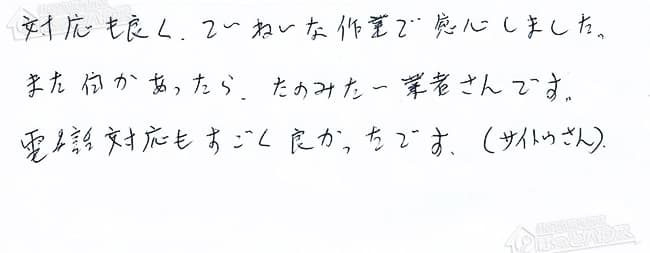 対応も良く、ていねいな作業で感心しました。
また何かあったら、たのみたい業者さんです。
電話対応もすごく良かったです、(サイトウさん)。